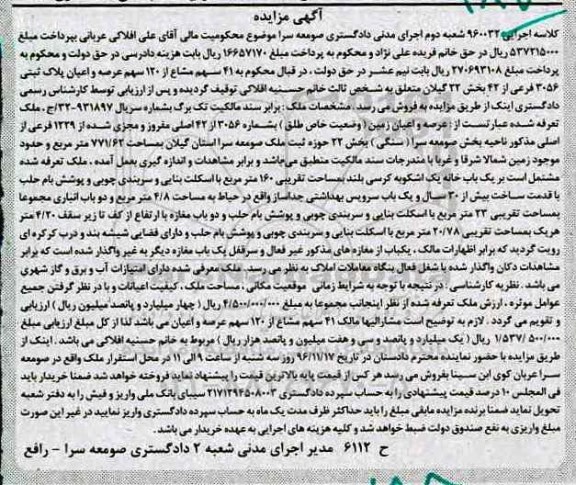 آگهی مزایده
کلاسه اجرایی ۹۶۰۰۳۲ شعبه دوم اجرای مدنی دادگستری صومعه سرا موضوع محکومیت مالی آقای علی افلاکی عربانی بپرداخت مبلغ
۵۳۷۲۱۵۰۰۰ ریال در حق خانم فریده علی نژاد و محکوم به پرداخت مبلغ ۱۶۶۵۷۱۷۰ ریال بابت هزینه دادرسی در حق دولت و محکوم به
پرداخت مبلغ ۲۷۰۶۹۳۱۰۸ ریال بابت نیم عشر در حق دولت ، در قبال محکوم به ۴۱ سهم مشاع از ۱۲۰ سهم عرصه و اعیان پلاک ثبتی
۳۰۵۶ فرعی از ۴۲ بخش ۲۲ گیلان متعلق به شخص ثالث خانم حسنیه افلاکی توقیف گردیده و پس از ارزیابی توسط کارشناس رسمی
دادگستری اینک از طریق مزایده به فروش می رسد . مشخصات ملک : برابر سند مالکیت تک برگ بشماره سریال ۹۳۱۸۹۷-۳۲/ج ، ملک
تعرفه شده عبارتست از : عرصه و اعیان زمین ( وضعیت خاص طلق ) بشماره ۳۰۵۶ از ۴۲ اصلی مفروز و مجزی شده از ۱۲۲۹ فرعی از
اصلی مذکور ناحیه بخش صومعه سرا ( سنگی ) بخش ۲۲ حوزه ثبت ملک صومعه سرا استان گیلان بمساحت ۷۷۱/۶۲ متر مربع و حدود
موجود زمین شمالا شرقا و غربا با مندرجات سند مالکیت منطبق می‌باشد و برابر مشاهدات و اندازه گیری بعمل آمده ، ملک تعرفه شده
مشتمل است بر یک باب خانه یک اشکوبه کرسی بلند بمساحت تقریبی ۱۶۰ متر مربع با اسکلت بنایی و سربندی چوبی و پوشش بام حلب
با قدمت ساخت بیش از ۳۰ سال و یک باب سرویس بهداشتی جداساز واقع در حیاط به مساحت ۴/۸ متر مربع و دو باب انباری مجموعا
بمساحت تقریبی ۲۳ متر مربع با اسکلت بنایی و سربندی چوبی و پوشش بام حلب و دو باب مغازه با ارتفاع از کف تا زیر سقف ۴/۲۰ متر
هریک بمساحت تقریبی ۲۰/۷۸ متر مربع با اسکلت بنایی و سربندی چوبی و پوشش بام حلب و دارای فضایی شیشه بند و درب کرکره ای
رویت گردید که برابر اظهارات مالک ، یکباب از مغازه های مذکور غیر فعال و سرقفل یک باب مغازه دیگر به غیر واگذار شده است که برابر
مشاهدات دکان واگذار شده با شغل فعال بنگاه معاملات املاک به نظر می رسد. ملک معرفی شده دارای امتیازات آب و برق و گاز شهری
می باشد . نظریه کارشناسی . در نتیجه با توجه به شرایط زمانی موقعیت مکانی ، مساحت ملک ، کیفیت اعیانات و با در نظر گرفتن جمیع
عوامل موثره ، ارزش ملک تعرفه شده از نظر اینجانب مجموعا به مبلغ ۴/۵۰۰/۰۰۰/۰۰۰ ریال ( چهار میلیارد و پانصد میلیون ریال ) ارزیابی
و تقویم می گردد . لازم به توضیح است مشارالیها مالک ۴۱ سهم مشاع از ۱۲۰ سهم عرصه و اعیان می باشد لذا از کل مبلغ ارزیابی مبلغ
۱/۵۳۷/۵۰۰/۰۰۰ ریال ( یک میلیارد و پانصد و سی و هفت میلیون و پانصد هزار ریال ) مربوط به خانم حسنیه افلاکی می باشد . اینک از
طریق مزایده با حضور نماینده محترم دادستان در تاریخ ۹۶/۱۱/۱۷ روز سه شنبه از ساعت ۹ الی ۱۱ در محل استقرار ملک واقع در صومعه
سرا عربان کوی ابن سینا بفروش می رسد. هر کس از قیمت پایه بالاترین قیمت را پیشنهاد نماید فروخته خواهد شد ضمنا خریدار باید
فی المجلس ۱۰ درصد قیمت پیشنهادی را به حساب سپرده دادگستری ۲۱۷۱۲۹۴۵۰۸۰۰۳ سیبای بانک ملی واریز و فیش را به دفتر شعبه
تحویل نماید ضمنا برنده مزایده مابقی مبلغ را باید حداکثر ظرف مدت یک ماه به حساب سپرده دادگستری واریز نمایند در غیر این صورت
مبلغ واریزی به نفع صندوق دولت ضبط خواهد شد و کلیه هزینه های اجرایی به عهده خریدار می باشد .
ح ۶۱۱۲ مدیر اجرای مدنی شعبه ۲ دادگستری صومعه سرا – رافع